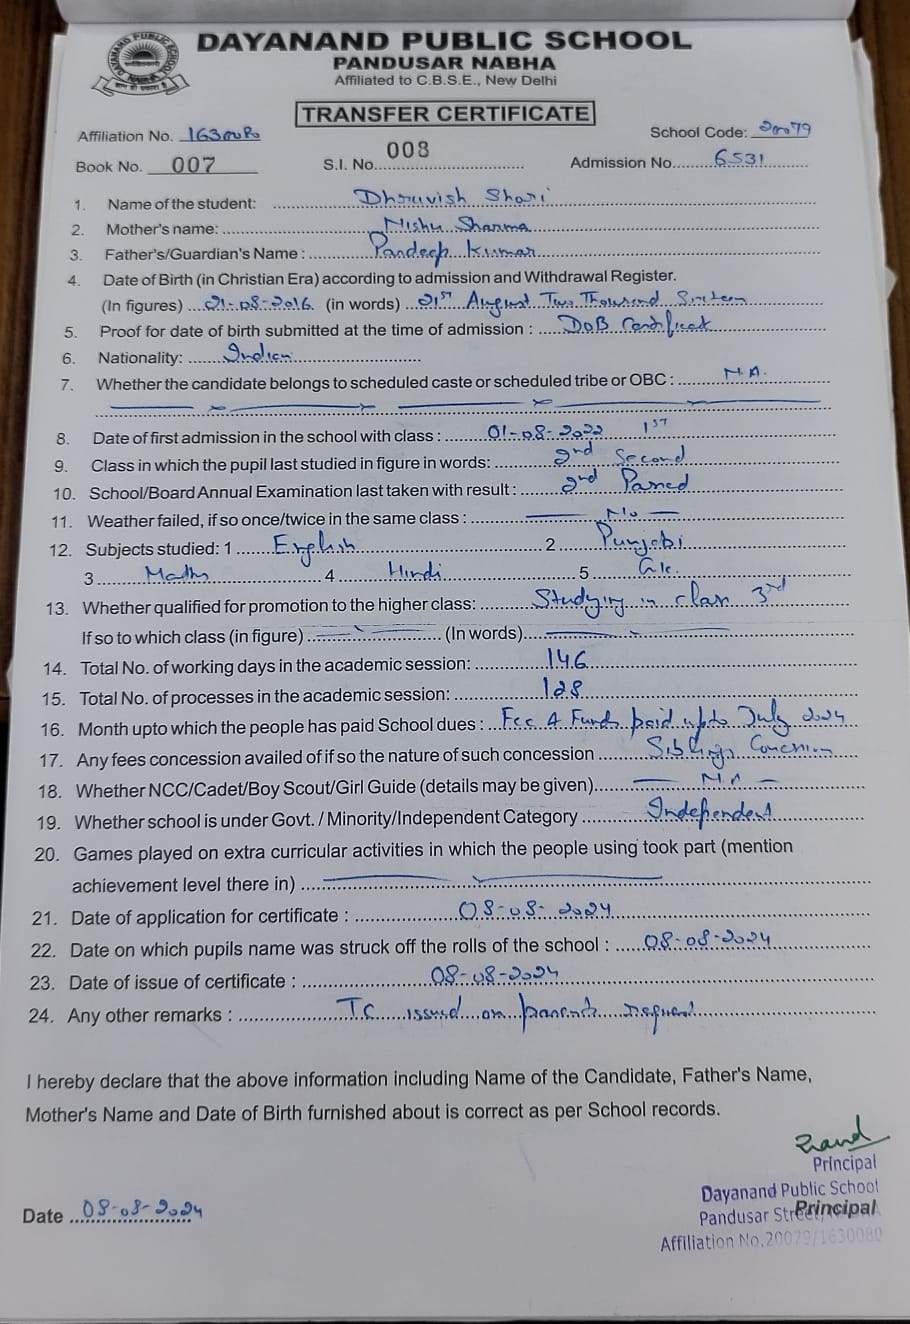 DAYANAND PUBLIC SCHOOL
PANDUSAR NABHA
Affiliated to C.B.S.E., New Delhi
TRANSFER CERTIFICATE
Affiliation No. 1630080 School Code: 20079
Book No. 007 S.I. No. 008 Admission No. 6531
1. Name of the student: Dhruvish Shori
2. Mother's name: Nishu Sharma
3. Father's/Guardian's Name : Pardeep Kumar
4. Date of Birth (in Christian Era) according to admission and Withdrawal Register.
(In figures) 21-08-2016 (in words) 21st August Two Thousand Sixteen
5. Proof for date of birth submitted at the time of admission : DOB Certificate
6. Nationality: Indian
7. Whether the candidate belongs to scheduled caste or scheduled tribe or OBC : N.A.
8. Date of first admission in the school with class : 01-08-2022 1ST
9. Class in which the pupil last studied in figure in words: 2nd Second
10. School/Board Annual Examination last taken with result : 2nd Passed
11. Weather failed, if so once/twice in the same class : No
12. Subjects studied: 1 English 2 Punjabi
3 Maths 4 Hindi 5 G.K.
13. Whether qualified for promotion to the higher class: Studying in class 3rd
If so to which class (in figure) (In words)
14. Total No. of working days in the academic session: 146
15. Total No. of processes in the academic session: 128
16. Month upto which the people has paid School dues : Fee & Funds paid upto July 2024
17. Any fees concession availed of if so the nature of such concession Siblings Concession
18. Whether NCC/Cadet/Boy Scout/Girl Guide (details may be given) NA
19. Whether school is under Govt. / Minority/Independent Category Independent
20. Games played on extra curricular activities in which the people using took part (mention
achievement level there in)
21. Date of application for certificate : 08-08-2024
22. Date on which pupils name was struck off the rolls of the school : 08-08-2024
23. Date of issue of certificate : 08-08-2024
24. Any other remarks : TC issued on parents request
I hereby declare that the above information including Name of the Candidate, Father's Name,
Mother's Name and Date of Birth furnished about is correct as per School records.
Principal
Dayanand Public School
Date 08-08-2024 Pandusar Street, Principal
Affiliation No.20079/1630080